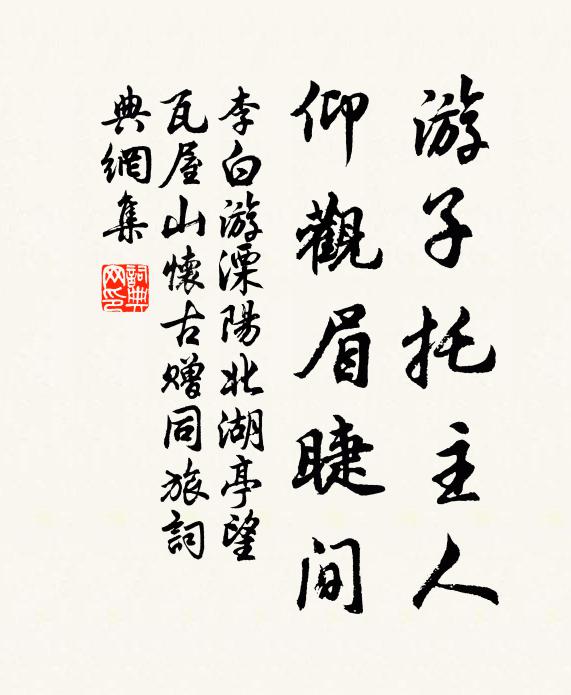 游子托主人
仰觀眉睫间
李白游溧陽北湖亭望
瓦屋山懷古贈同旅詞
典網集
詞典网印